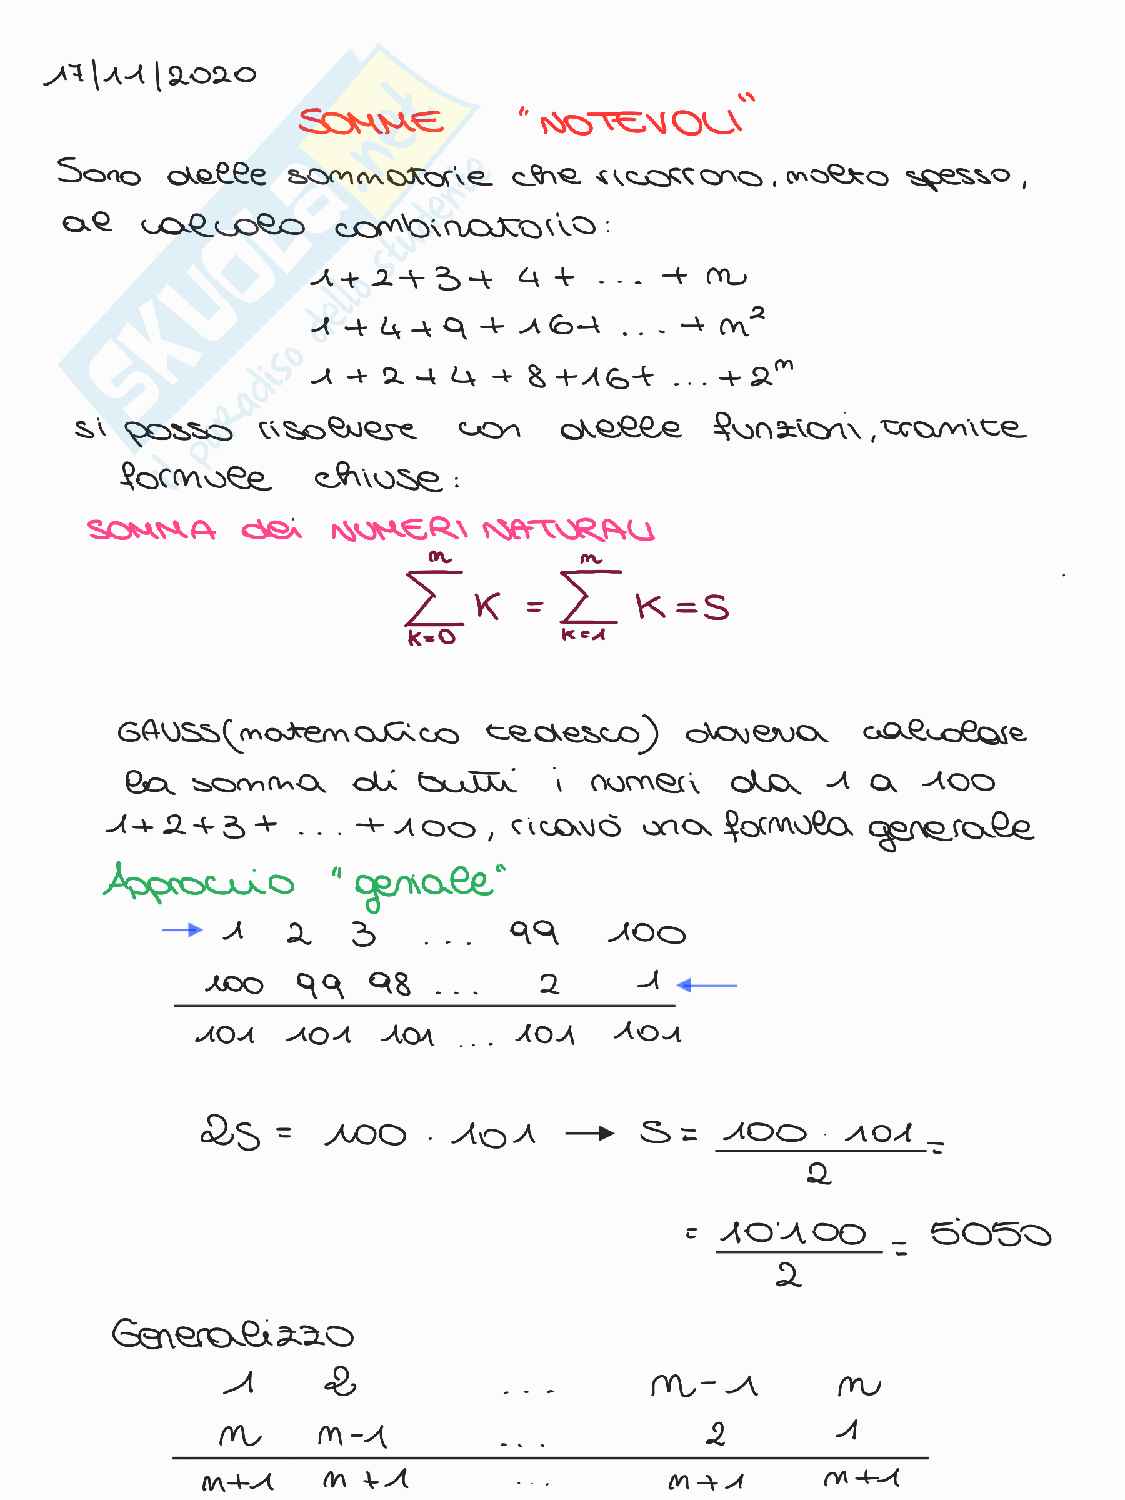 17/11/2020
SOMME "NOTEVOLI"
Sono delle sommatorie che ricorrono, molto spesso,
al calcolo combinatorio:
1+2+3+ 4+ ... + n
1+4+9+16+ ... + n²
1+2+4+8+16+ ... + 2ⁿ
si posso risolvere con delle funzioni, tramite
formule chiuse:
SOMMA dei NUMERI NATURALI
n n
∑ K = ∑ K = S
K=0 K=1
GAUSS (matematico tedesco) doveva calcolare
la somma di tutti i numeri da 1 a 100
1+2+3+ ... +100, ricavò una formula generale
Approccio "geniale"
→ 1 2 3 ... 99 100
100 99 98 ... 2 1 ←
101 101 101 ... 101 101
2S = 100 · 101 → S = 100 · 101 =
2
= 10'100 = 5050
2
Generalizzo
1 2 ... n-1 n
n n-1 ... 2 1
n+1 n+1 ... n+1 n+1
SKUOLA.net
il paradiso dello studente